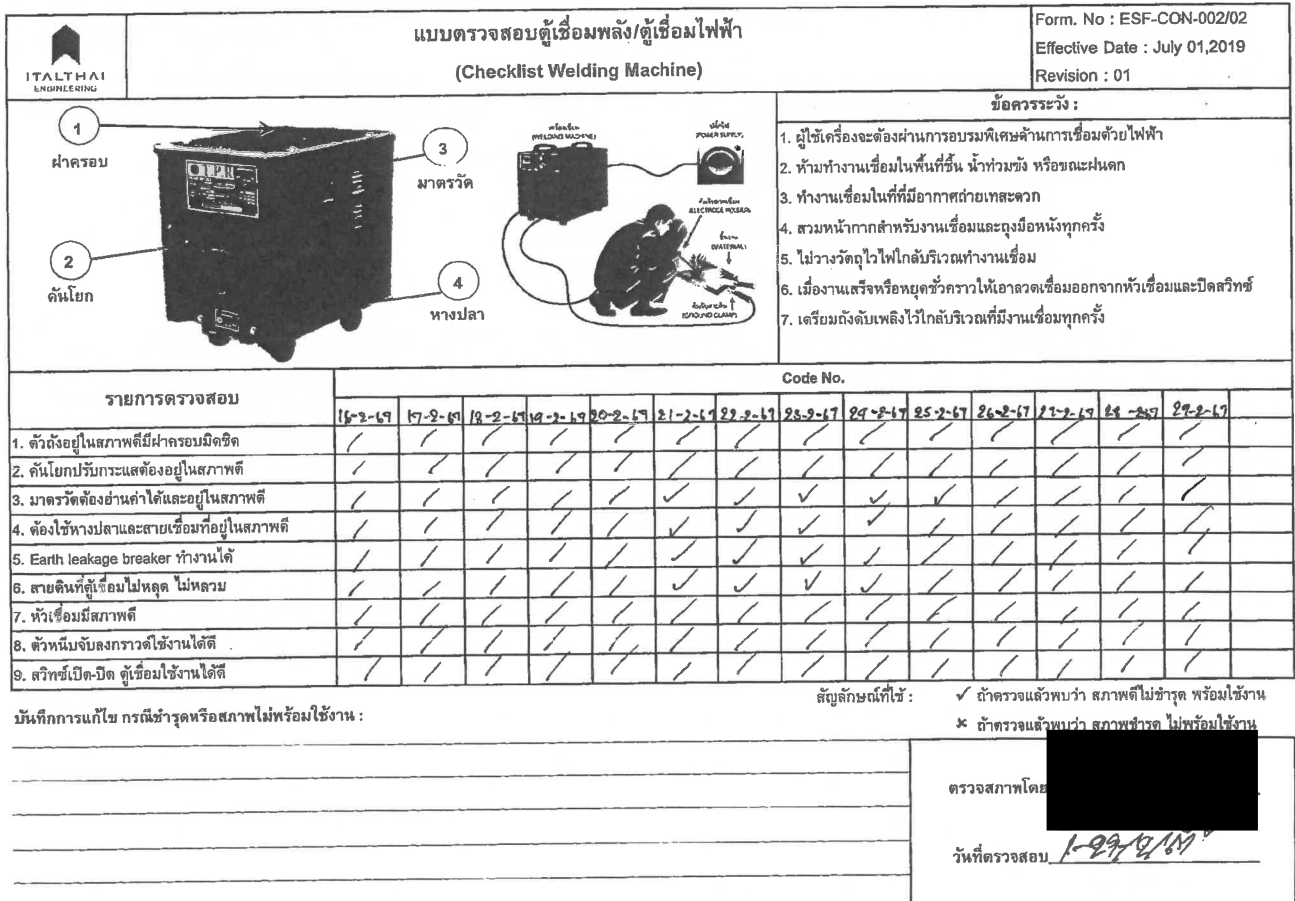 ITALTHAI
ENGINEERING
แบบตรวจสอบตู้เชื่อมพลัง/ตู้เชื่อมไฟฟ้า
(Checklist Welding Machine)
Form. No : ESF-CON-002/02
Effective Date : July 01,2019
Revision : 01
1
ฝาครอบ
2
คันโยก
3
มาตรวัด
4
หางปลา
(WELDING MACHINE)
(POWER SUPPLY)
(ELECTRODE HOLDER)
ชิ้นงาน
(MATERIAL)
(GROUND CLAMP)
ข้อควรระวัง :
1. ผู้ใช้เครื่องจะต้องผ่านการอบรมพิเศษด้านการเชื่อมด้วยไฟฟ้า
2. ห้ามทำงานเชื่อมในพื้นที่ชื้น น้ำท่วมขัง หรือขณะฝนตก
3. ทำงานเชื่อมในที่ที่มีอากาศถ่ายเทสะดวก
4. สวมหน้ากากสำหรับงานเชื่อมและถุงมือหนังทุกครั้ง
5. ไม่วางวัตถุไวไฟใกล้บริเวณทำงานเชื่อม
6. เมื่องานเสร็จหรือหยุดชั่วคราวให้เอาลวดเชื่อมออกจากหัวเชื่อมและปิดสวิทซ์
7. เตรียมถังดับเพลิงไว้ใกล้บริเวณที่มีงานเชื่อมทุกครั้ง
รายการตรวจสอบ
Code No.
16-2-67 17-2-67 18-2-67 19-2-67 20-2-67 21-2-67 22-2-67 23-2-67 24-2-67 25-2-67 26-2-67 27-2-67 28-2-67 29-2-67
1. ตัวถังอยู่ในสภาพดีมีฝาครอบมิดชิด / / / / / / / / / / / / / /
2. คันโยกปรับกระแสต้องอยู่ในสภาพดี / / / / / / / / / / / / / /
3. มาตรวัดต้องอ่านค่าได้และอยู่ในสภาพดี / / / / / ✓ ✓ ✓ ✓ ✓ / / / /
4. ต้องใช้หางปลาและสายเชื่อมที่อยู่ในสภาพดี / / / / / ✓ ✓ ✓ ✓ / / / / /
5. Earth leakage breaker ทำงานได้ / / / / / ✓ ✓ ✓ ✓ / / / / /
6. สายดินที่ตู้เชื่อมไม่หลุด ไม่หลวม / / / / / ✓ ✓ ✓ ✓ / / / / /
7. หัวเชื่อมมีสภาพดี / / / / / / / / / / / / / /
8. ตัวหนีบจับลงกราวด์ใช้งานได้ดี / / / / / / / / / / / / / /
9. สวิทซ์เปิด-ปิด ตู้เชื่อมใช้งานได้ดี / / / / / / / / / / / / / /
สัญลักษณ์ที่ใช้ : ✓ ถ้าตรวจแล้วพบว่า สภาพดีไม่ชำรุด พร้อมใช้งาน
✗ ถ้าตรวจแล้วพบว่า สภาพชำรุด ไม่พร้อมใช้งาน
บันทึกการแก้ไข กรณีชำรุดหรือสภาพไม่พร้อมใช้งาน :
ตรวจสภาพโดย
วันที่ตรวจสอบ